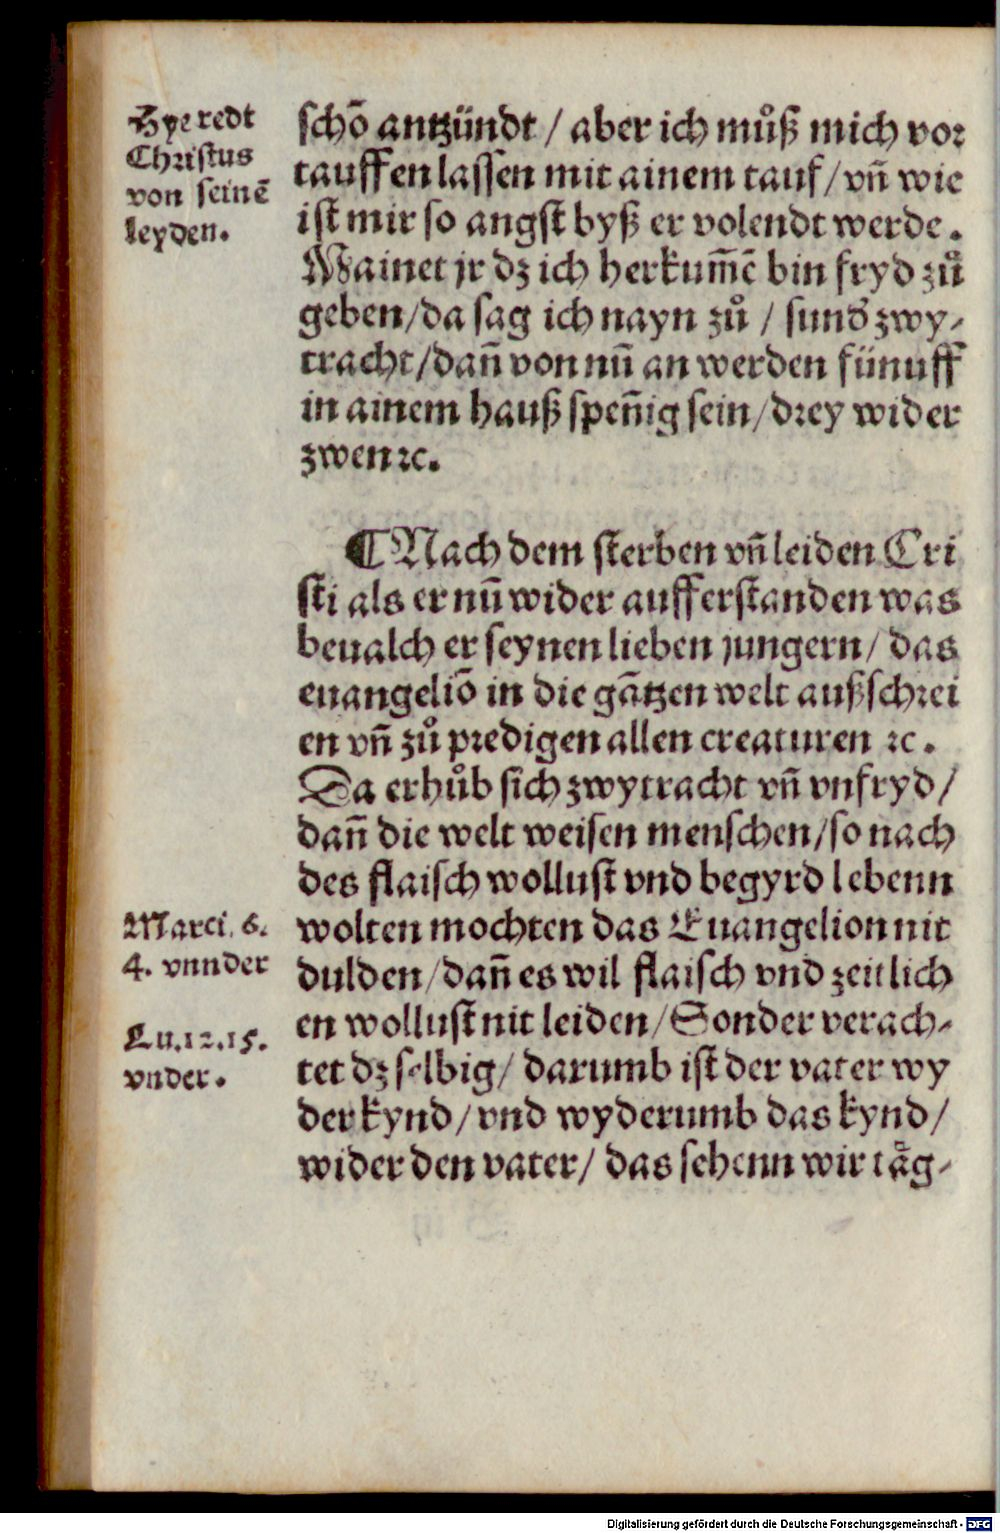 Hye redt
Christus
von seinē
leyden.
schō antzündt / aber ich můß mich vor
tauffen lassen mit ainem tauf / vn̄ wie
ist mir so angst byß er volendt werde.
Wainet jr dz ich herkum̄ē bin fryd zů
geben / da sag ich nayn zů / sund' zwy-
tracht / dan̄ von nū an werden fünuff
in ainem hauß spen̄ig sein / drey wider
zwen ꝛc.
¶ Nach dem sterben vn̄ leiden Cri
sti als er nū wider aufferstanden was
beualch er seynen lieben jungern / das
euangeliō in die gātzen welt außschrei
en vn̄ zů predigen allen creaturen ꝛc.
Da erhůb sich zwytracht vn̄ vnfryd /
dan̄ die welt weisen menschen / so nach
des flaisch wollust vnd begyrd lebenn
Marci. 6.
4. vnnder
wolten mochten das Euangelion nit
dulden / dan̄ es wil flaisch vnd zeitlich
Lu.12.15.
vnder.
en wollust nit leiden / Sonder verach-
tet dz selbig / darumb ist der vater wy
der kynd / vnd wyderumb das kynd /
wider den vater / das sehenn wir taͤg-
Digitalisierung gefördert durch die Deutsche Forschungsgemeinschaft - DFG